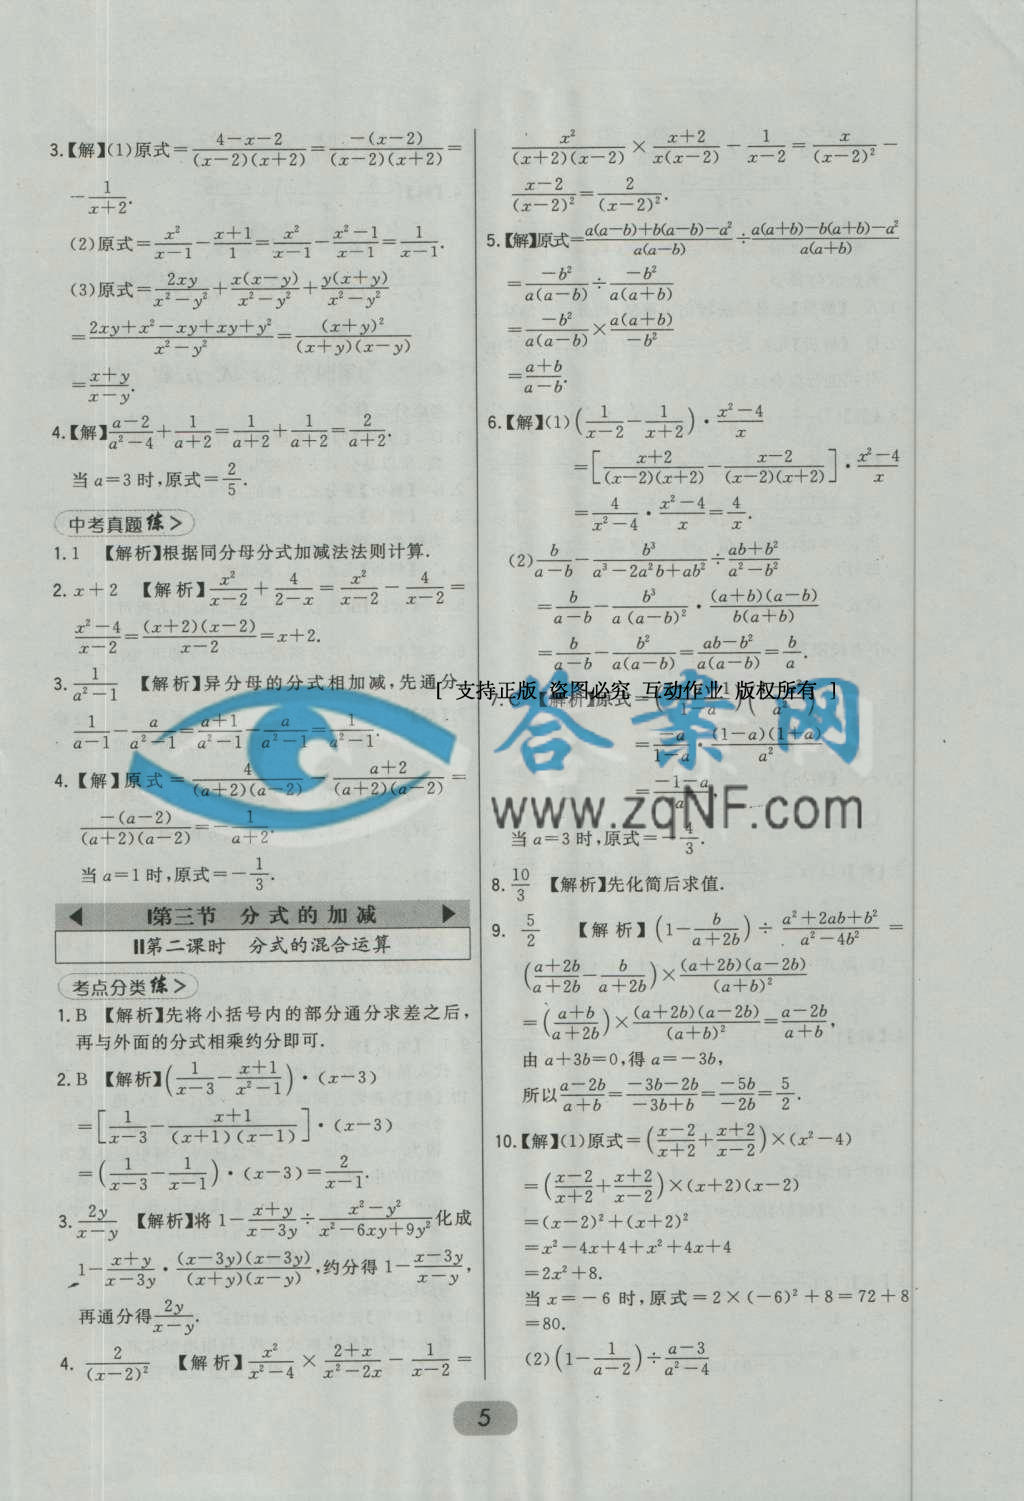 3.【解】(1)原式=\frac{4-x-2}{(x-2)(x+2)}=\frac{-(x-2)}{(x-2)(x+2)}=
-\frac{1}{x+2}.
(2)原式=\frac{x^2}{x-1}-\frac{x+1}{1}=\frac{x^2}{x-1}-\frac{x^2-1}{x-1}=\frac{1}{x-1}.
(3)原式=\frac{2xy}{x^2-y^2}+\frac{x(x-y)}{x^2-y^2}+\frac{y(x+y)}{x^2-y^2}
=\frac{2xy+x^2-xy+xy+y^2}{x^2-y^2}=\frac{(x+y)^2}{(x+y)(x-y)}
=\frac{x+y}{x-y}.
4.【解】\frac{a-2}{a^2-4}+\frac{1}{a+2}=\frac{1}{a+2}+\frac{1}{a+2}=\frac{2}{a+2}.
当 a=3 时,原式=\frac{2}{5}.
中考真题练>
1. 1 【解析】根据同分母分式加减法法则计算.
2. x+2 【解析】\frac{x^2}{x-2}+\frac{4}{2-x}=\frac{x^2}{x-2}-\frac{4}{x-2}=
\frac{x^2-4}{x-2}=\frac{(x+2)(x-2)}{x-2}=x+2.
3. \frac{1}{a^2-1} 【解析】异分母的分式相加减,先通分
\frac{1}{a-1}-\frac{a}{a^2-1}=\frac{a+1}{a^2-1}-\frac{a}{a^2-1}=\frac{1}{a^2-1}.
4.【解】原式=\frac{4}{(a+2)(a-2)}-\frac{a+2}{(a+2)(a-2)}=
\frac{-(a-2)}{(a+2)(a-2)}=-\frac{1}{a+2}.
当 a=1 时,原式=-\frac{1}{3}.
◀ Ⅰ第三节 分式的加减 ▶
Ⅱ第二课时 分式的混合运算
考点分类练>
1. B 【解析】先将小括号内的部分通分求差之后,
再与外面的分式相乘约分即可.
2. B 【解析】(\frac{1}{x-3}-\frac{x+1}{x^2-1})·(x-3)
=[\frac{1}{x-3}-\frac{x+1}{(x+1)(x-1)}]·(x-3)
=(\frac{1}{x-3}-\frac{1}{x-1})·(x-3)=\frac{2}{x-1}.
3. \frac{2y}{x-y} 【解析】将 1-\frac{x+y}{x-3y}÷\frac{x^2-y^2}{x^2-6xy+9y^2}化成
1-\frac{x+y}{x-3y}·\frac{(x-3y)(x-3y)}{(x+y)(x-y)},约分得 1-\frac{x-3y}{x-y},
再通分得\frac{2y}{x-y}.
4. \frac{2}{(x-2)^2} 【解析】\frac{x^2}{x^2-4}×\frac{2+x}{x^2-2x}-\frac{1}{x-2}=
\frac{x^2}{(x+2)(x-2)}×\frac{x+2}{x(x-2)}-\frac{1}{x-2}=\frac{x}{(x-2)^2}-
\frac{x-2}{(x-2)^2}=\frac{2}{(x-2)^2}.
5.【解】原式=\frac{a(a-b)+b(a-b)-a^2}{a(a-b)}÷\frac{a(a+b)-b(a+b)-a^2}{a(a+b)}
=\frac{-b^2}{a(a-b)}÷\frac{-b^2}{a(a+b)}
=\frac{-b^2}{a(a-b)}×\frac{a(a+b)}{-b^2}
=\frac{a+b}{a-b}.
6.【解】(1)(\frac{1}{x-2}-\frac{1}{x+2})·\frac{x^2-4}{x}
=[\frac{x+2}{(x-2)(x+2)}-\frac{x-2}{(x-2)(x+2)}]·\frac{x^2-4}{x}
=\frac{4}{x^2-4}·\frac{x^2-4}{x}=\frac{4}{x}.
(2)\frac{b}{a-b}-\frac{b^3}{a^3-2a^2b+ab^2}÷\frac{ab+b^2}{a^2-b^2}
=\frac{b}{a-b}-\frac{b^3}{a(a-b)^2}·\frac{(a+b)(a-b)}{b(a+b)}
=\frac{b}{a-b}-\frac{b^2}{a(a-b)}=\frac{ab-b^2}{a(a-b)}=\frac{b}{a}.
[ 支持正版 盗图必究 互动作业 版权所有 ]
7. C 【解析】原式=
=\frac{-a}{1-a}·\frac{(1-a)(1+a)}{a^2}
=\frac{-1-a}{a}.
当 a=3 时,原式=-\frac{4}{3}.
答案网
www.zqNF.com
8. \frac{10}{3} 【解析】先化简后求值.
9. \frac{5}{2} 【解析】(1-\frac{b}{a+2b})÷\frac{a^2+2ab+b^2}{a^2-4b^2}=
(\frac{a+2b}{a+2b}-\frac{b}{a+2b})×\frac{(a+2b)(a-2b)}{(a+b)^2}
=(\frac{a+b}{a+2b})×\frac{(a+2b)(a-2b)}{(a+b)^2}=\frac{a-2b}{a+b},
由 a+3b=0,得 a=-3b,
所以\frac{a-2b}{a+b}=\frac{-3b-2b}{-3b+b}=\frac{-5b}{-2b}=\frac{5}{2}.
10.【解】(1)原式=(\frac{x-2}{x+2}+\frac{x+2}{x-2})×(x^2-4)
=(\frac{x-2}{x+2}+\frac{x+2}{x-2})×(x+2)(x-2)
=(x-2)^2+(x+2)^2
=x^2-4x+4+x^2+4x+4
=2x^2+8.
当 x=-6 时,原式=2×(-6)^2+8=72+8
=80.
(2)(1-\frac{1}{a-2})÷\frac{a-3}{a^2-4}
5